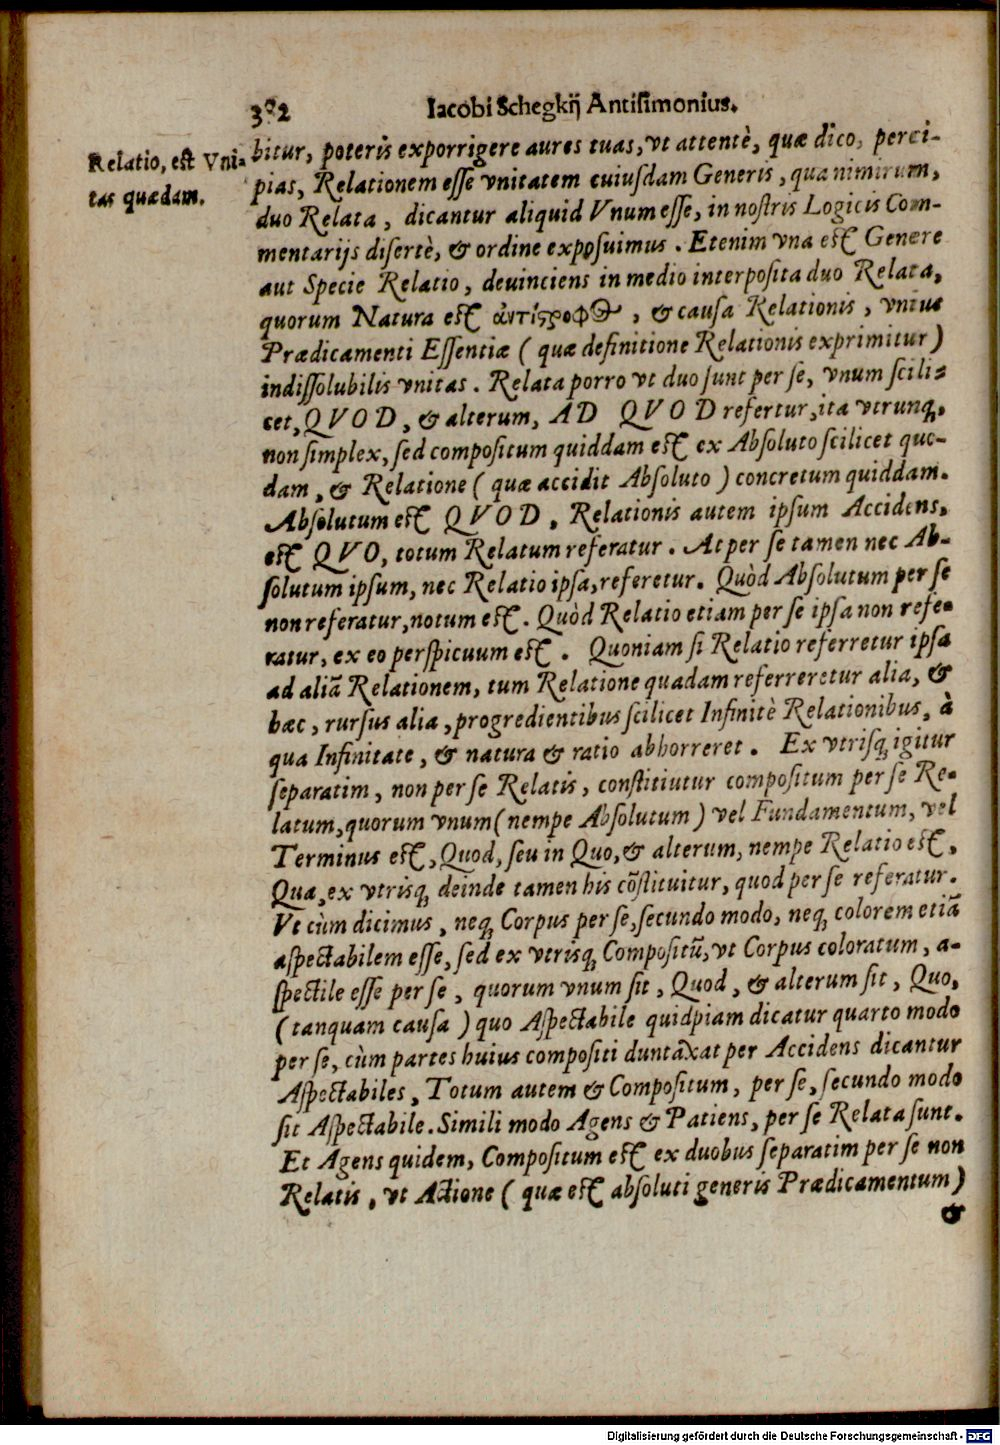 302 Iacobi Schegkij Antisimonius.
Relatio, est Vni-
tas quædam.
bitur, poteris exporrigere aures tuas, vt attentè, quæ dico, perci-
pias, Relationem esse vnitatem cuiusdam Generis, qua nimirum,
duo Relata, dicantur aliquid Vnum esse, in nostris Logicis Com-
mentarijs disertè, & ordine exposuimus. Etenim vna est Genere
aut Specie Relatio, deuinciens in medio interposita duo Relata,
quorum Natura est ἀντίςροφ, & causa Relationis, vnius
Prædicamenti Essentiæ (quæ definitione Relationis exprimitur)
indissolubilis vnitas. Relata porro vt duo sunt per se, vnum scili-
cet, QVOD, & alterum, AD QVOD refertur, ita vtrunq,
non simplex, sed compositum quiddam est ex Absoluto scilicet quo-
dam, & Relatione (quæ accidit Absoluto) concretum quiddam.
Absolutum est QVOD, Relationis autem ipsum Accidens,
est QVO, totum Relatum referatur. At per se tamen nec Ab-
solutum ipsum, nec Relatio ipsa, referetur. Quòd Absolutum per se
non referatur, notum est. Quòd Relatio etiam per se ipsa non refe-
ratur, ex eo perspicuum est. Quoniam si Relatio referretur ipsa
ad aliā Relationem, tum Relatione quadam referreretur alia, &
hæc, rursus alia, progredientibus scilicet Infinitè Relationibus, à
qua Infinitate, & natura & ratio abhorreret. Ex vtrisq, igitur
separatim, non per se Relatis, constitiutur compositum per se Re-
latum, quorum vnum (nempe Absolutum) vel Fundamentum, vel
Terminus est, Quod, seu in Quo, & alterum, nempe Relatio est,
Qua, ex vtrisq, deinde tamen his cōstituitur, quod per se referatur.
Vt cùm dicimus, neq, Corpus per se, secundo modo, neq, colorem etiā
aspectabilem esse, sed ex vtrisq, Compositū, vt Corpus coloratum, a-
spectile esse per se, quorum vnum sit, Quod, & alterum sit, Quo,
(tanquam causa) quo Aspectabile quidpiam dicatur quarto modo
per se, cùm partes huius compositi duntaxat per Accidens dicantur
Aspectabiles, Totum autem & Compositum, per se, secundo modo
sit Aspectabile. Simili modo Agens & Patiens, per se Relata sunt.
Et Agens quidem, Compositum est ex duobus separatim per se non
Relatis, vt Actione (quæ est absoluti generis Prædicamentum)
&
Digitalisierung gefördert durch die Deutsche Forschungsgemeinschaft - DFG